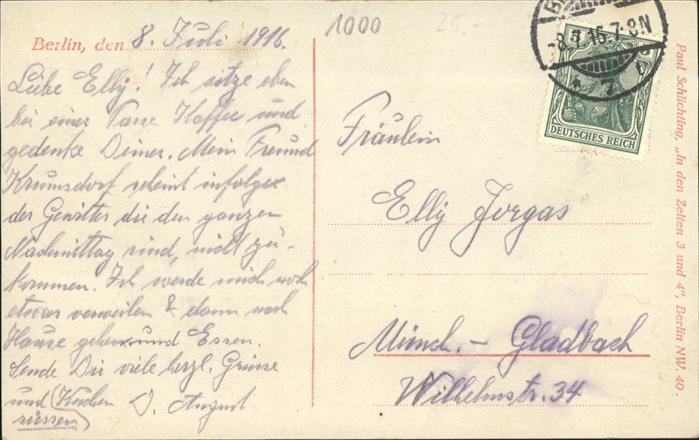 1000
25,-
Berlin, den 8. Juli 1916.
Liebe Elly! Ich sitze eben
bei einer Tasse Kaffee und
gedenke Deiner. Mein Freund
Krumsdorf scheint infolge
der Gewitter die den ganzen
Nachmittag sind, nicht zu
kommen. Ich werde mich noch
etwas verweilen & dann nach
Hause gehen und Essen.
Sende Dir viele herzl. Grüsse
und (Kuchen D. August
süssen)
Fräulein
Elly Jorgas
Münch.-Gladbach
Wilhelmstr. 34
DEUTSCHES REICH
5
-8.7.16.7-8N
Paul Schlichting, „In den Zelten 3 und 4", Berlin NW. 40.